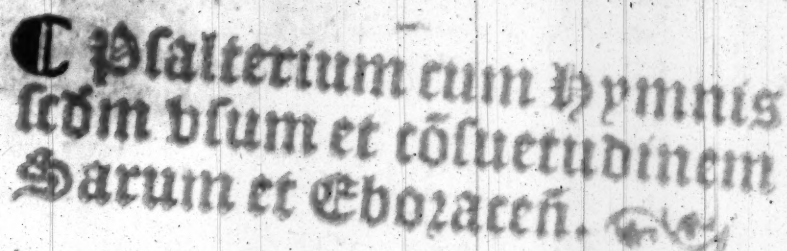 ⁋ Pſalterium cum Hymnis
ſcd̄m vſum et cōſuetudinem
Sarum et Eboraceñ.